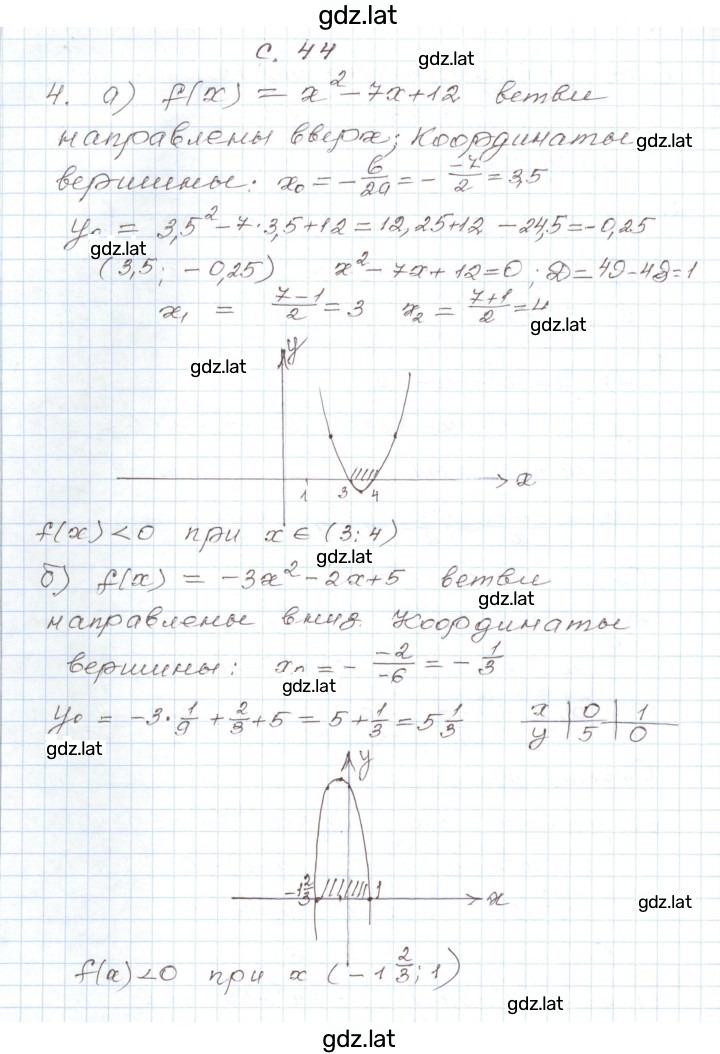 gdz.lat
с. 44
gdz.lat
4. а) f(x) = x² - 7x + 12 ветви
направлены вверх; Координаты
gdz.lat
вершины: x₀ = -б/2а = - -7/2 = 3,5
y₀ = 3,5² - 7·3,5 + 12 = 12,25 + 12 - 24,5 = -0,25
gdz.lat
(3,5; -0,25) x² - 7x + 12 = 0; D = 49 - 48 = 1
x₁ = 7-1/2 = 3 x₂ = 7+1/2 = 4
gdz.lat
y
gdz.lat
x
1 3 4
f(x) < 0 при x ∈ (3; 4)
gdz.lat
б) f(x) = -3x² - 2x + 5 ветви
gdz.lat
направлены вниз. Координаты
вершины: x₀ = - -2/-6 = -1/3
gdz.lat
y₀ = -3·1/9 + 2/3 + 5 = 5 + 1/3 = 5 1/3
x | 0 | 1
y | 5 | 0
gdz.lat
y
-1 2/3 1 x
gdz.lat
f(x) < 0 при x (-1 2/3; 1)
gdz.lat
gdz.lat